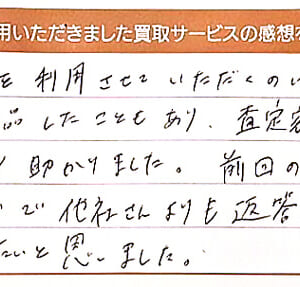 用いただきました買取サービスの感想を
を利用させていただくのい
品したこともあり、査定客
助かりました。前回の
で他社さんよりも返答
たいと思いました。